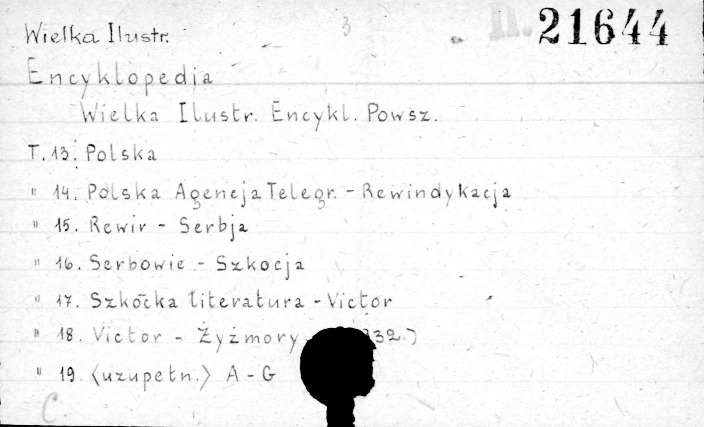 Wielka Ilustr.
3
n. 21644
Encyklopedia
Wielka Ilustr. Encykl. Powsz.
T. 13. Polska
" 14. Polska Agencja Telegr. - Rewindykacja
" 15. Rewir - Serbja
" 16. Serbowie - Szkocja
" 17. Szkocka literatura - Victor
" 18. Victor - Żyżmory 932.)
" 19. <uzupełn.> A - G
C.